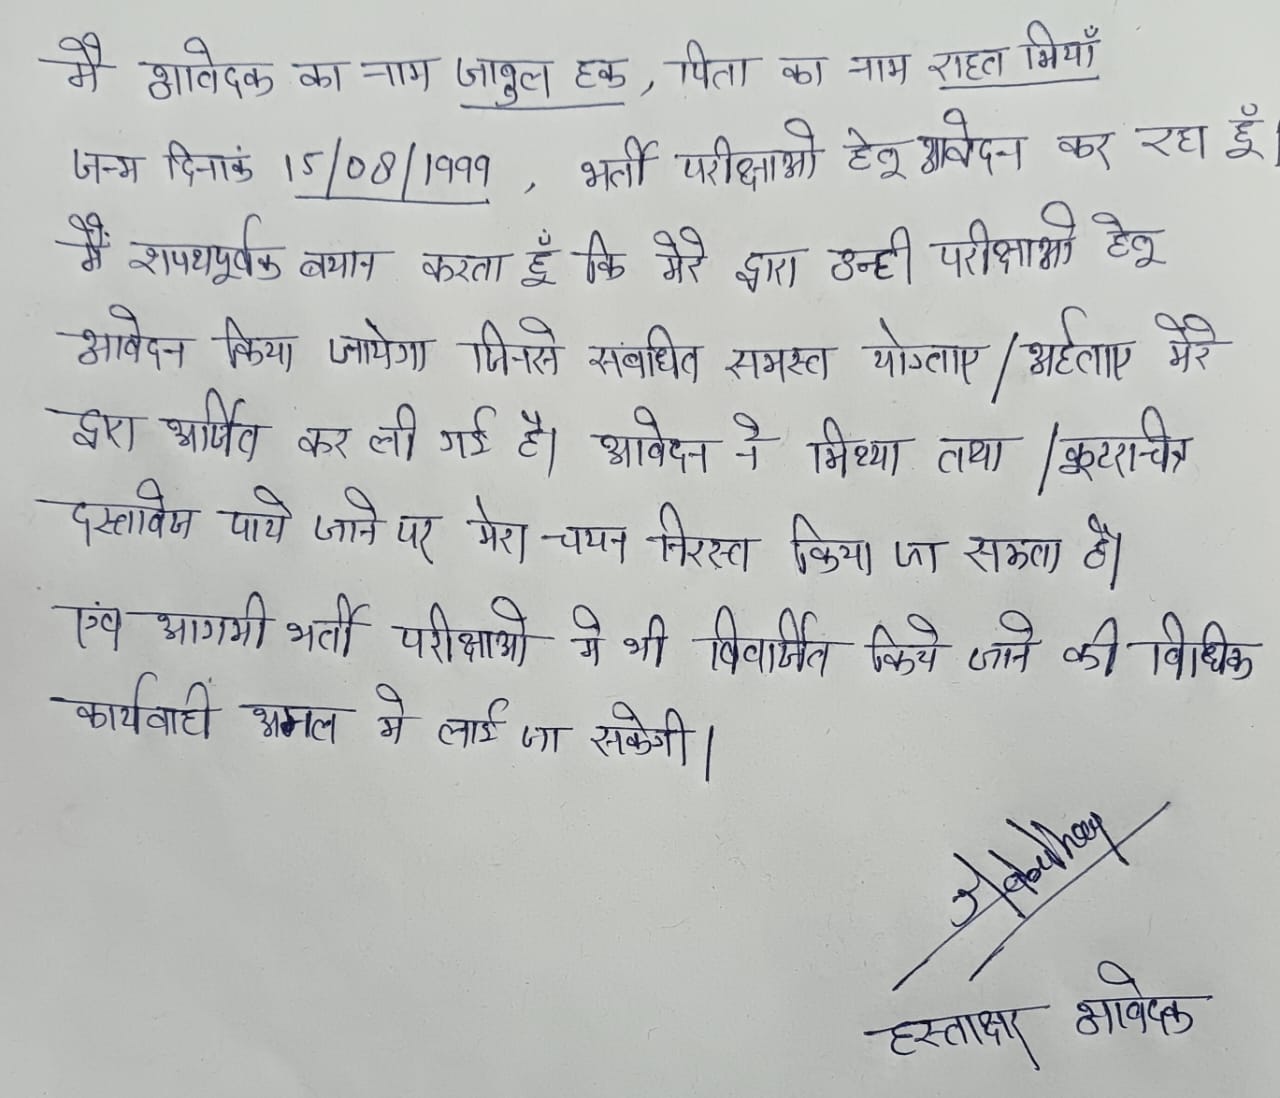 मै आवेदक का नाम जाबुल हक, पिता का नाम राहत मियाँ
जन्म दिनाकं 15/08/1999, भर्ती परीक्षाओ हेतु आवेदन कर रहा हूँ।
मैं शपथपूर्वक बयान करता हूँ कि मेरे द्वारा उन्ही परीक्षाओ हेतु
आवेदन किया जायेगा जिनसे संबधित समस्त योग्ताए/अर्हताए मेरे
द्वारा अर्जित कर ली गई है। आवेदन ने मिथ्या तथा /कूटरचित्र
दस्तावेज पाये जाने पर मेरा चयन निरस्त किया जा सकता है।
एंव आगमी भर्ती परीक्षाओ मे भी विवर्जित किये जाने की विधिक
कार्यवाही अमल मे लाई जा सकेगी।
हस्ताक्षर आवेदक